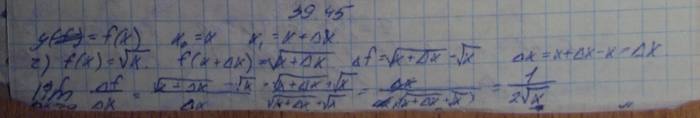 39.45
y = f(x) x₀ = x x₁ = x + Δx
2) f(x) = √x. f(x + Δx) = √(x + Δx) Δf = √(x + Δx) - √x Δx = x + Δx - x = Δx
lim Δf/Δx = (√(x + Δx) - √x)/Δx · (√(x + Δx) + √x)/(√(x + Δx) + √x) = Δx/(Δx(√(x + Δx) + √x)) = 1/(2√x)